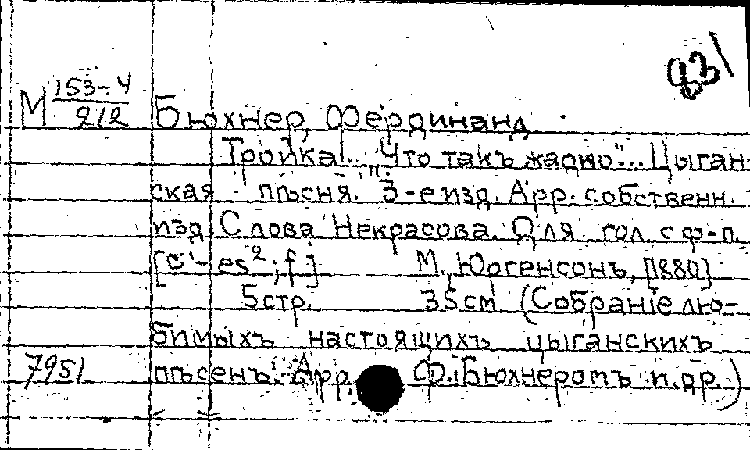 831
М 153-4/212
Бюхнер, Фердинанд
Тройка!.. "Что такъ жадно"... Цыган-
ская пѣсня. 3-е изд. Арр. собственн.
изд. Слова Некрасова. Для гол. с ф-п.
[c'-es²; f] М., Юргенсонъ, [1880]
5стр. 35см (Собраніе лю-
бимыхъ настоящихъ цыганскихъ
7951 пѣсенъ. Арр. Ф. Бюхнеромъ и др.)